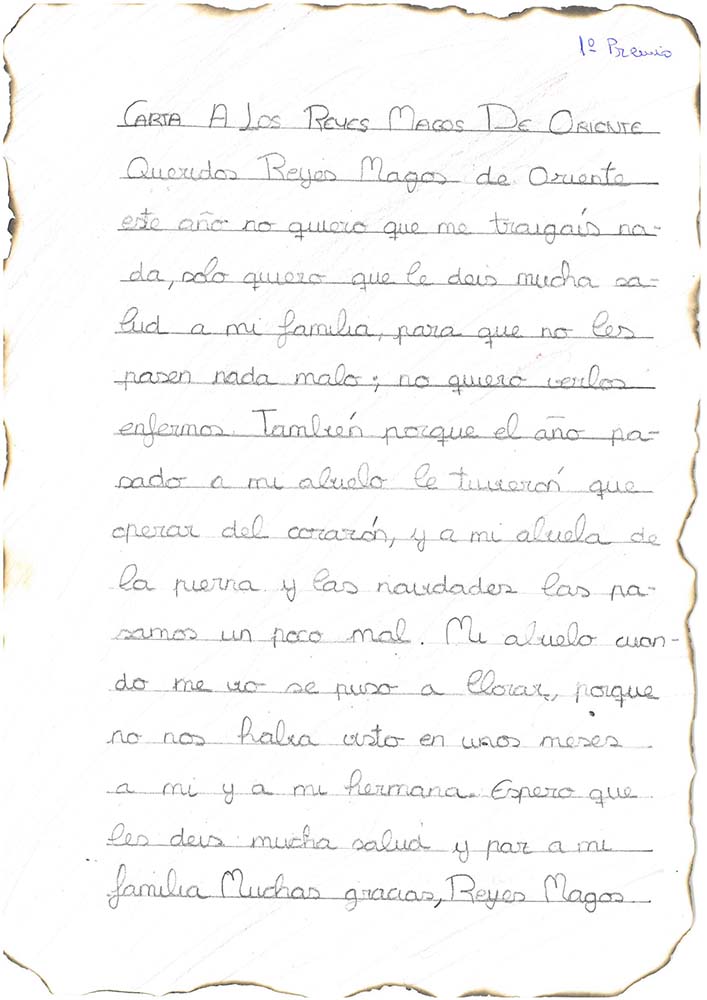 1º Premio
CARTA A LOS REYES MAGOS DE ORIENTE
Queridos Reyes Magos de Oriente
este año no quiero que me traigaís na-
da, solo quiero que le deis mucha sa-
lud a mi familia, para que no les
pasen nada malo; no quiero verlos
enfermos. También porque el año pa-
sado a mi abuelo le tuvierón que
operar del corazón, y a mi abuela de
la pierna y las navidades las pa-
samos un poco mal. Mi abuelo cuan-
do me vio se puso a llorar, porque
no nos habia visto en unos meses
a mi y a mi hermana. Espero que
les deis mucha salud y paz a mi
familia Muchas gracias, Reyes Magos